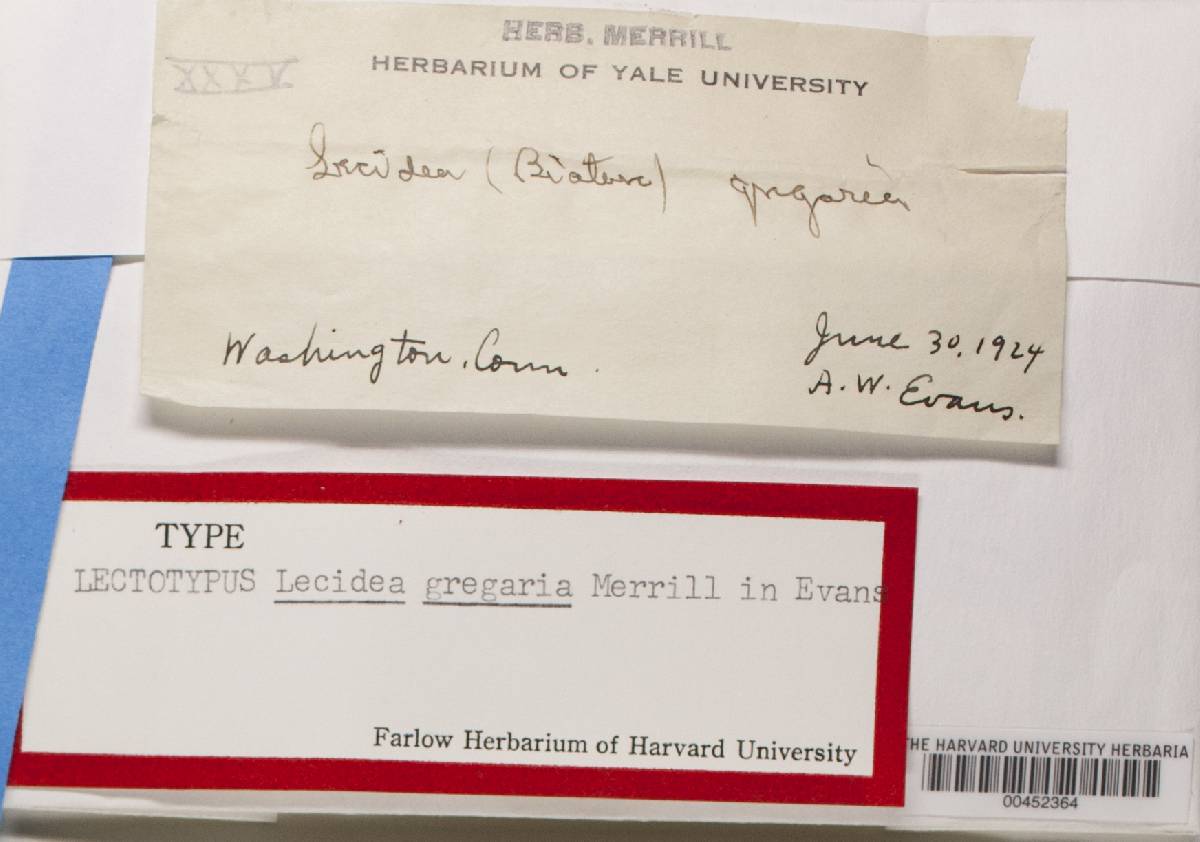 HERB. MERRILL
XXXV
HERBARIUM OF YALE UNIVERSITY
Lecidea (Biatora) gregaria
Washington, Conn.
June 30, 1924
A. W. Evans.
TYPE
LECTOTYPUS Lecidea gregaria Merrill in Evans
Farlow Herbarium of Harvard University
HE HARVARD UNIVERSITY HERBARIA
00452364